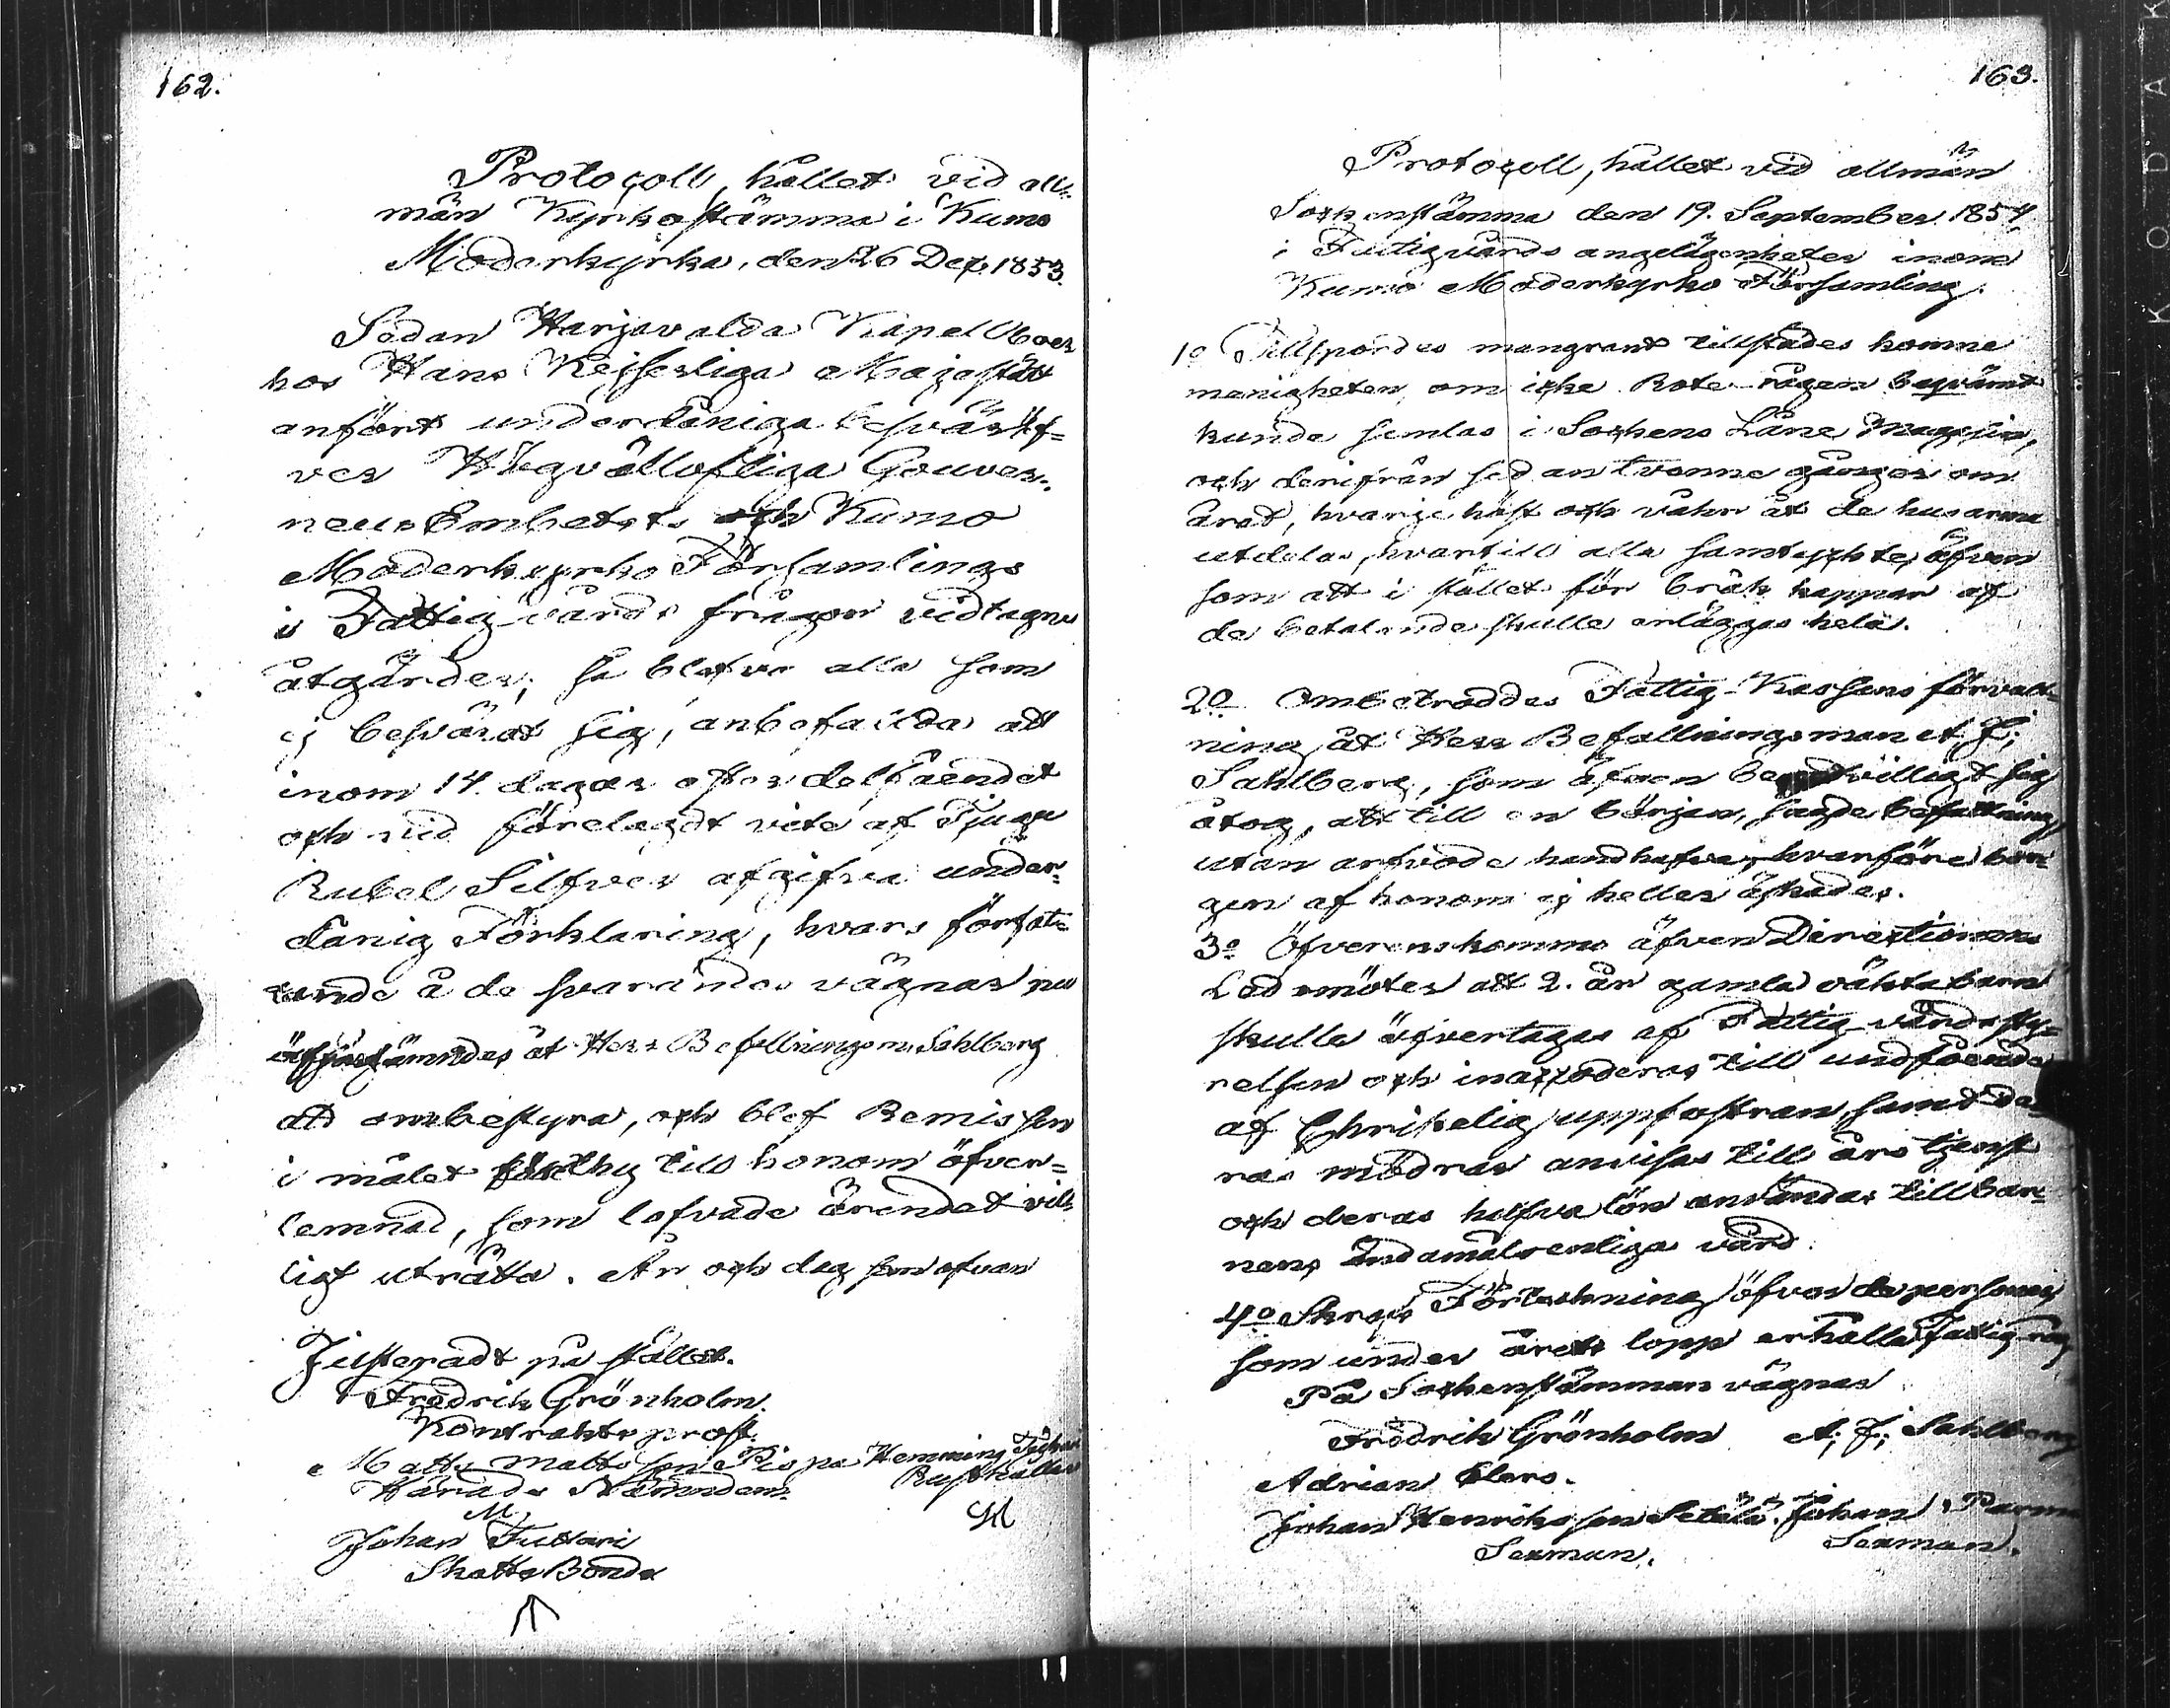 162.
Protocoll, hållet vid all-
män Kyrkostämma i Kumo
Moderkyrka, den 26 Dec. 1853.
Sedan Harjavalda Kapel Boer
hos Hans Kejserliga Majestät
anfört underdåniga besvär öf-
ver Högvällofliga Gouver-
neurs Embetets och Kumo
Moderkyrko Församlings
i Fattigvårds frågor vidtagna
åtgärder; så blefvo alla som
ej besvärat sig, anbefallda att
inom 14 dagar efter delfåendet
och vid förelagdt vite af Tjugu
Rubel Silfver afgifva under-
danig Förklaring, hvars förfat-
tande å de svarandes vägnar nu
åt Herr Befallningsm. Sahlberg
att ombestyra, och blef Remissen
i målet förthy till honom öfver-
lemnad, som lofvade ärendet vil-
ligt uträtta. År och dag som ofvan
Justeradt på stället.
Fredrik Grönholm.
Kontrakts prost.
Matts Mattsson Piopa Hemming
Härads Nämndem. Rusthållar
M
Johan Tuttari
Skatte Bonde
163.
Protocoll, hållet vid allmän
Sockenstämma den 19. September 1854,
i Fattigvårds angelägenheter inom
Kumo Moderkyrko Församling.
1o Tillspordes mangrant tillstädes komne
menigheten, om icke Rote-rågen beqvämt
kunde samlas i Sockens Låne Magasin,
och derifrån sedan tvenne gånger om
året, hvarje höst och våhr åt de husarma
utdelas, hvartill alla samtyckte, äfven
som att i stället för bräk kappar af
de betalande skulle erläggas hela.
2o Ombetroddes Fattig-Kassans förvalt-
ning åt Herr Befallningsmannet J;
Sahlberg, som äfven benedvilligt sig
åtog, att till en början, sagde befattning
utan arfvode handhafva, hvarföre bor-
gen af honom ej heller äskades.
3o Öfverenskommo äfven Directionens
Ledamöter att 2. år gamla oäkta barn
skulle öfvertagas af Fattig-vårdssty-
relsen och inaccoderas till undfående
af Christelig uppfostran samt de-
ras mödrar anvisas till års tjenst
och deras halfva lön användas till bar-
nens ändamålsenliga vård.
4o Skrefs Förteckning öfver de personer,
som under årets lopp erhålla Fattig-råg
På Sockenstämmans vägnar
Fredrik Grönholm A; J; Sahlberg
Adrian Clers.
Johan Henriksson Setälä. Johan
Sexman. Sexman.
KODAK